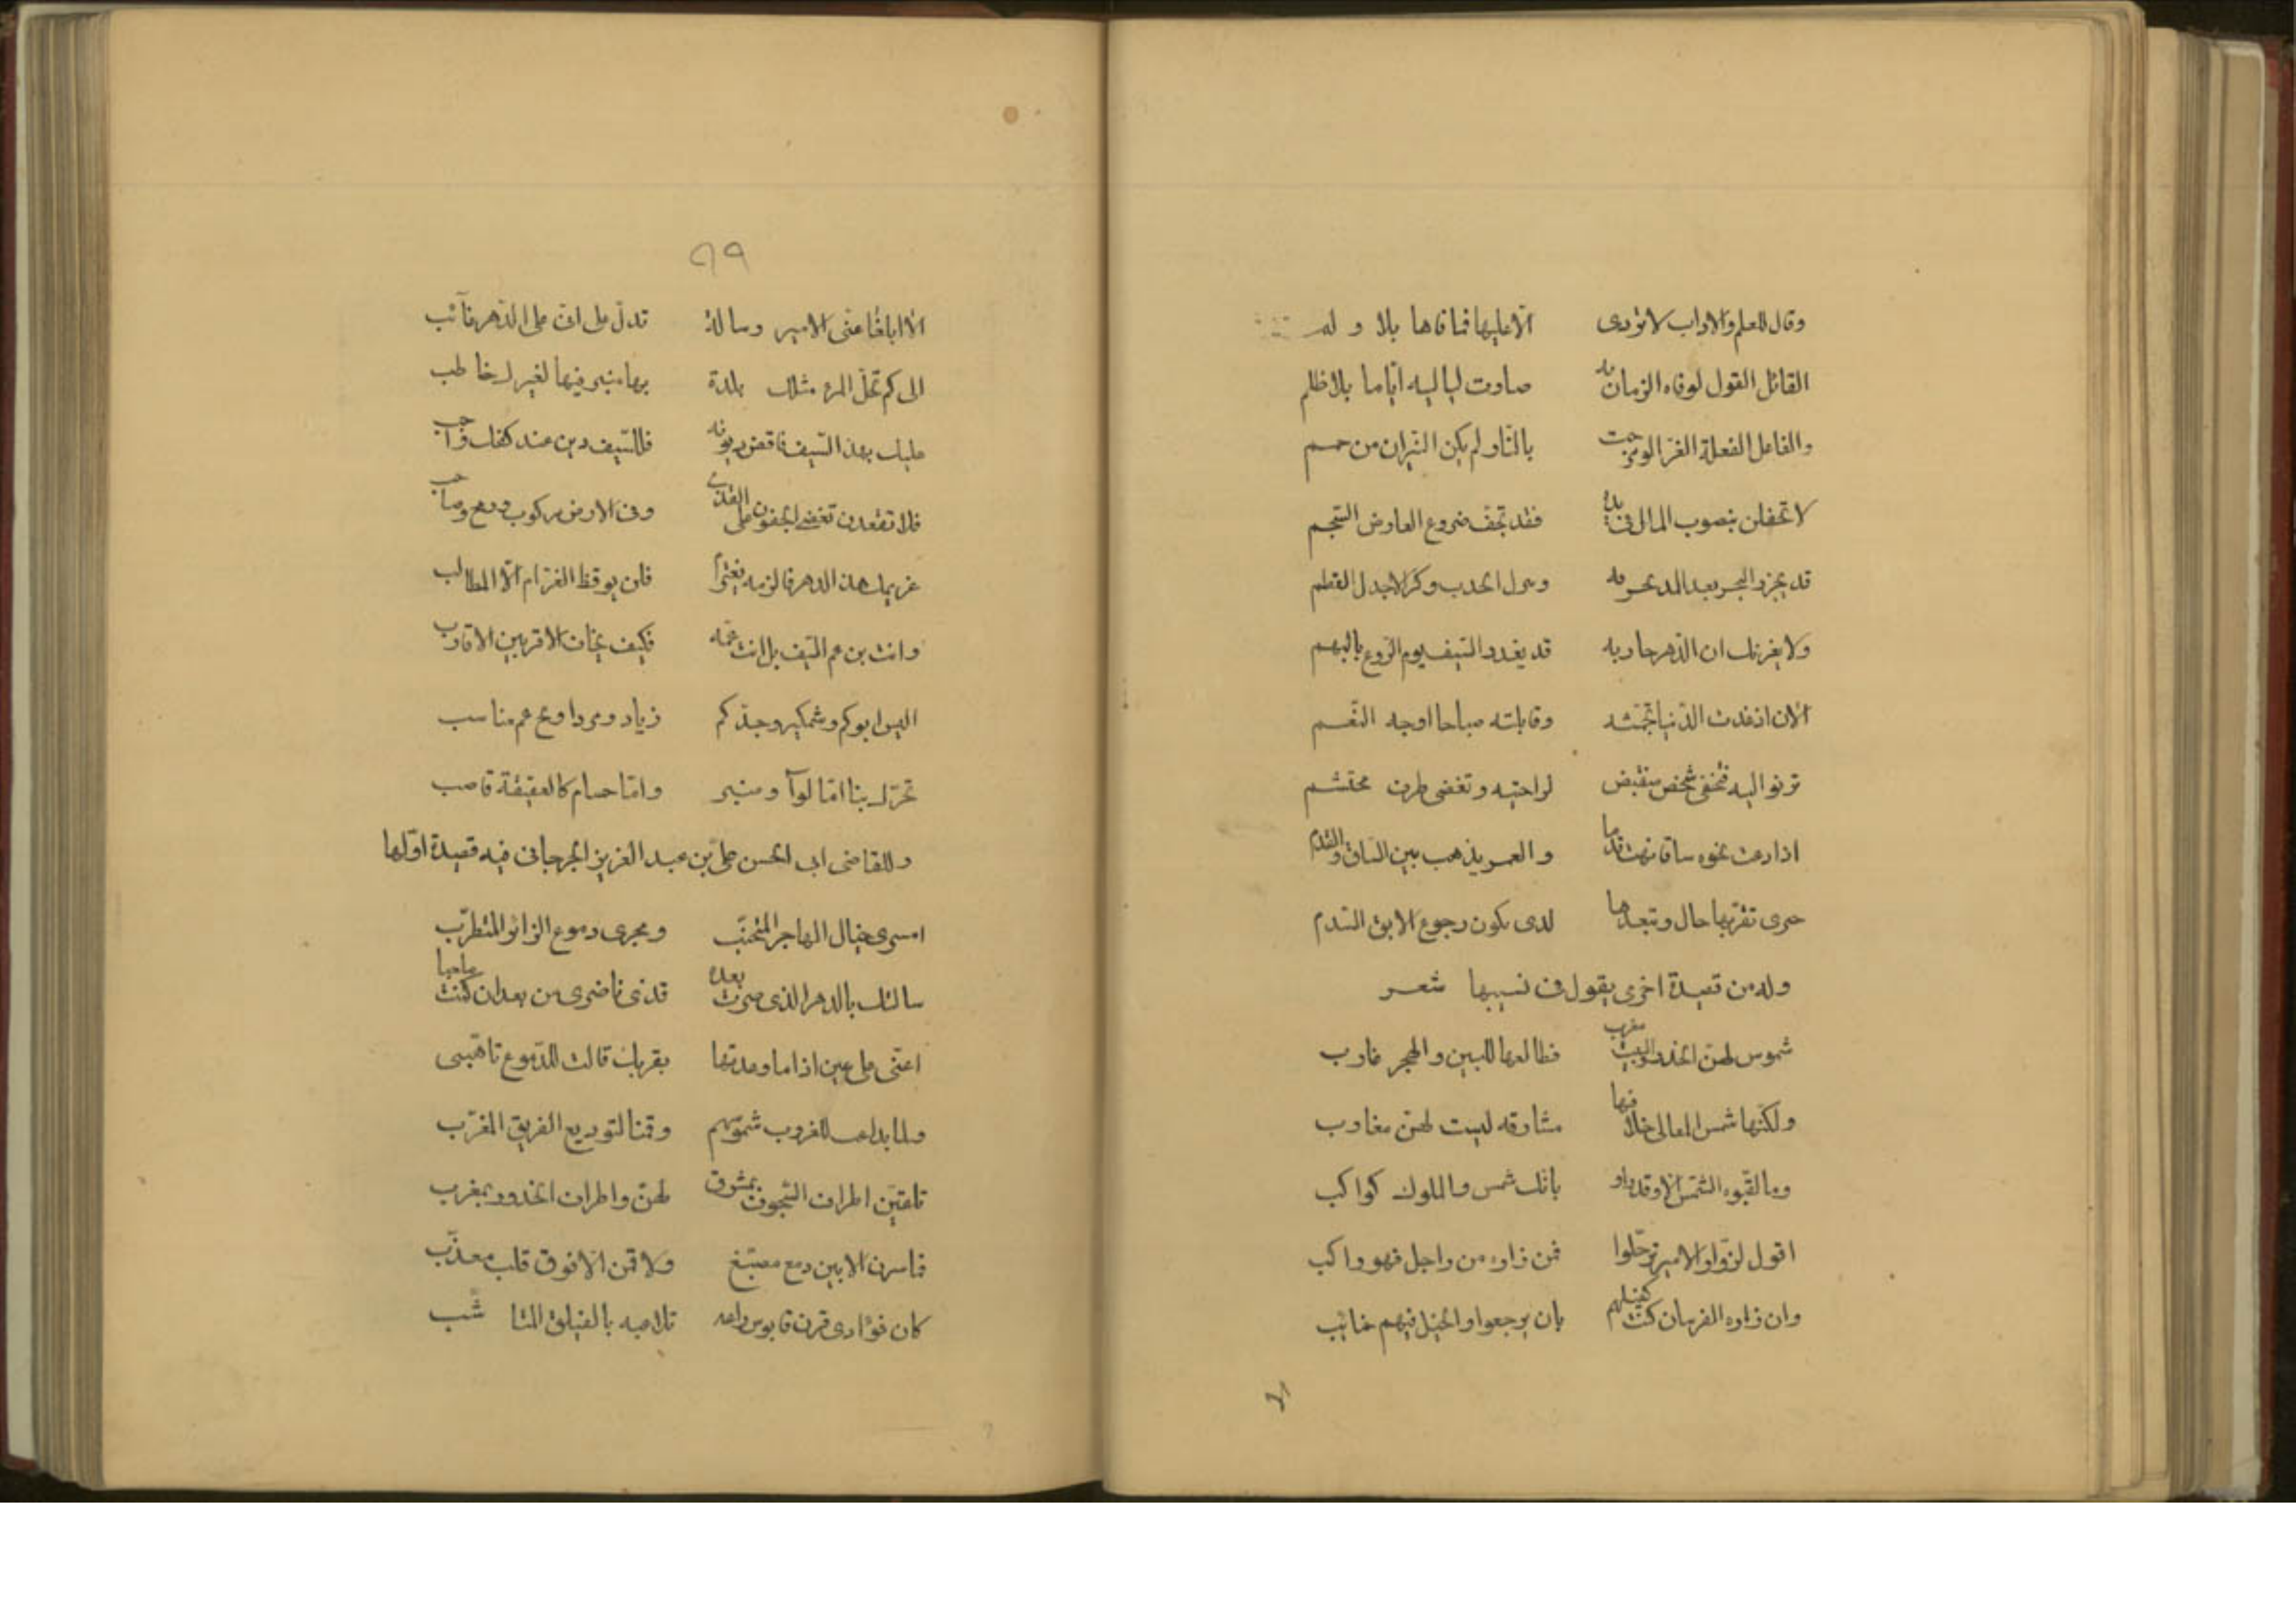 وقال للعلم والاداب لا تؤدى الّا عليها فما فاها بلا و لم
القائل القول لو فاه الزمان به صارت لياليه ايّاما بلا ظلم
والفاعل الفعلة الغرّ الو مزجت بالنّار لم يكن النيران من حمم
لا تحفلن بنصوب المال فى يده فقد تجفّ ضروع العارض السّجم
قد يجزر البحر بعد المد
ولا يغرنك ان الدّهر حاربه قد يغدر السّيف يوم الرّوع بالبهم
الآن اذ غدت الدّنيا تجمّشه وقابلته صباحا اوجه النّعم
ترنوا اليه فتخفى شخص منقبض لراحتيه وتغضى طرف محتشم
اذا دعت نحوه ساقا نهت قدما والعمر يذهب بين السّاق والقدم
حرى تقرّبها حال وتبعدها لدى يكون رجوع الابق النّدم
وله من قصيدة اخرى يقول فى نسيبها شعر
شموس لهنّ الخدر والبيت مغرب فطالعها للبين والهجر غارب
ولكنّها شمس المعالى خلافها مشارقه ليست لهنّ مغارب
وما لقّبوه الشّمس الا وقد راو بانّك شمس والملوك كواكب
اقول لزوّار الامير ترحّلوا فمن زاره من راجل فهو راكب
وان زاره الفرسان كنت كفيلهم بان يرجعوا والخيل فيهم جنائب
٩٩
الا ابلغا عنّى الامير رسالة تدلّ على انى على الدّهر نآئب
الى كم تحلّ المرء مثلك بلدة بها منبر فيها لغيرك خاطب
عليك بهذ السّيف فاقض ديونه فللسّيف دين عند كفك واجب
فلا تقعدن تغضى الجفون على القذى وفى الارض مركوب ورمح وصاحب
غريمك هذ الدهر فالزمه فلن يوقظ الغرّام الّا المطالب
وانت بن عم السّيف بل انت عمّه فكيف يخاف الاقربين الاقارب
اليس ابوكم وشمكير وجدّكم زياد ومرداويج عم مناسب
تحرّك بنا امّا لوآ ومنبر وامّا حسام كالعقيقة قاصب
وللقاضى ابى الحسن على بن عبد العزيز الجرجانى فيه قصيدة اوّلها
امسرى خيال الهاجر المتجنّب ومجرى دموع الزائر المتطرّب
سالتك بالدهر الذى صرت بعده قد نى ناضرى من بعد ان كنت صاحبا
اعنّى على عين اذا ما وعدتها بقربك قالت للدّموع تاهّبى
ولما بداعت للغروب شموسهم وقمنا لتوديع الفريق المغرّب
تلقيّن اطراف السّجوف بمشرق لهنّ واطراف الخدود بمغرب
فما سرن الا بين دمع مصبّغ ولا قمن الا فوق قلب معذّب
كان فؤادى قرن قابوس راعه تلاعبه بالفيلق المتا شّب